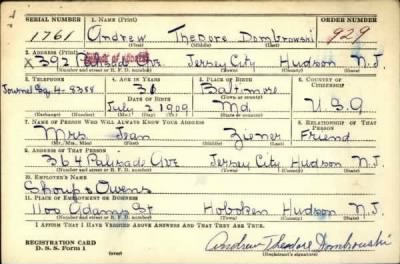 SERIAL NUMBER 1. NAME (Print) ORDER NUMBER
1761 Andrew Theodore Dombrowski 929
(First) (Middle) (Last)
2. ADDRESS (Print)
X392 Palisade Ave Jersey City Hudson N.J.
(Number and street or R. F. D. number) (Town) (County) (State)
3. TELEPHONE 4. AGE IN YEARS 5. PLACE OF BIRTH 6. COUNTRY OF CITIZENSHIP
Journal Sq 4-8388 Baltimore
DATE OF BIRTH (Town or county)
July 2 1909 Md. U.S.A
(Exchange) (Number) (Mo.) (Day) (Yr.) (State or country)
7. NAME OF PERSON WHO WILL ALWAYS KNOW YOUR ADDRESS 8. RELATIONSHIP OF THAT PERSON
Mrs. Jean Friend
(Mr., Mrs., Miss) (First) (Middle) (Last)
9. ADDRESS OF THAT PERSON
364 Palisade Ave Jersey City Hudson N.J.
(Number and street or R. F. D. number) (Town) (County) (State)
10. EMPLOYER'S NAME
Shoup & Owens
11. PLACE OF EMPLOYMENT OR BUSINESS
1100 Adams St Hoboken Hudson N.J.
(Number and street or R. F. D. number) (Town) (County) (State)
I AFFIRM THAT I HAVE VERIFIED ABOVE ANSWERS AND THAT THEY ARE TRUE.
REGISTRATION CARD Andrew Theodore Dombrowski
D. S. S. Form 1 (Registrant's signature)